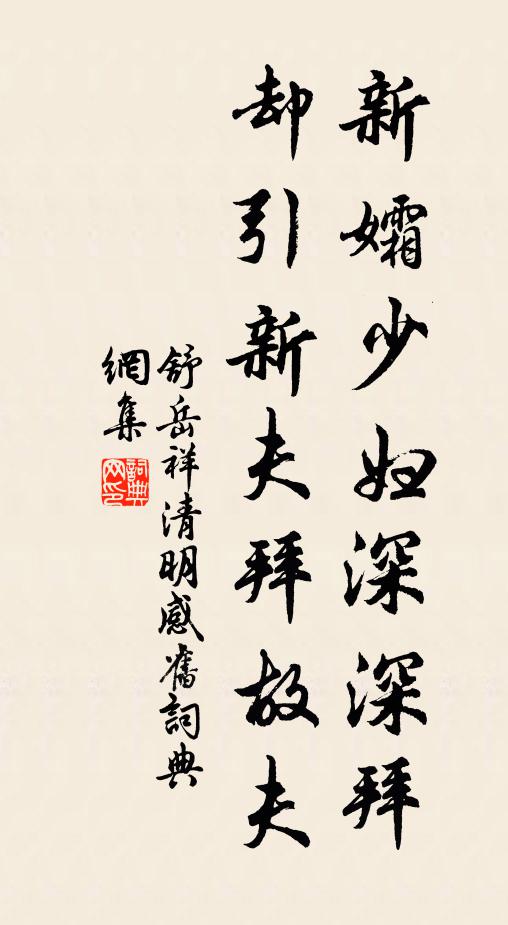 新孀少妇深深拜
却引新夫拜故夫
舒岳祥清明感舊詞典
網集
詞典網印